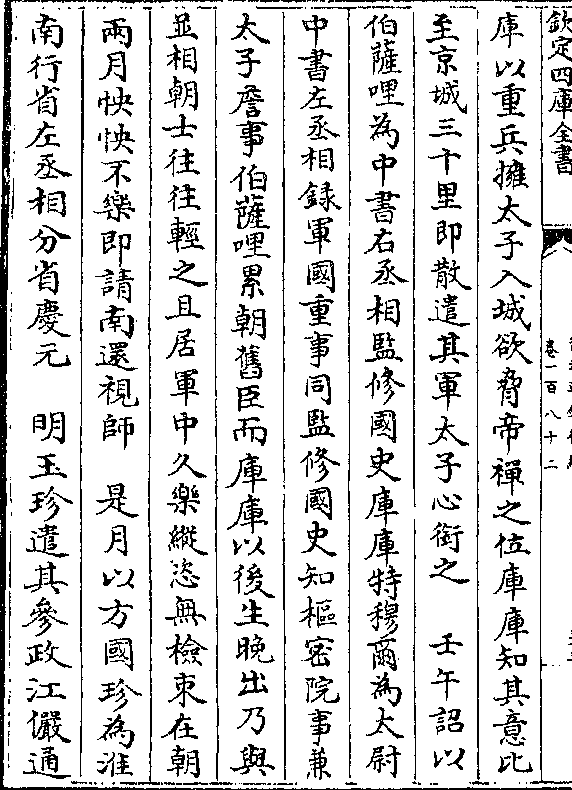 欽定四庫全書
卷一百八十二
庫以重兵擁太子入城欲脅帝禪之位庫庫知其意比
至京城三十里即散遣其軍太子心銜之　壬午詔以
伯薩哩為中書右丞相監修國史庫庫特穆爾為太尉
中書左丞相錄軍國重事同監修國史知樞密院事兼
太子詹事伯薩哩累朝舊臣而庫庫以後生晚出乃與
並相朝士往往輕之且居軍中久樂縱恣無檢束在朝
兩月怏怏不樂即請南還視師　是月以方國珍為淮
南行省左丞相分省慶元　明玉珍遣其參政江儼通